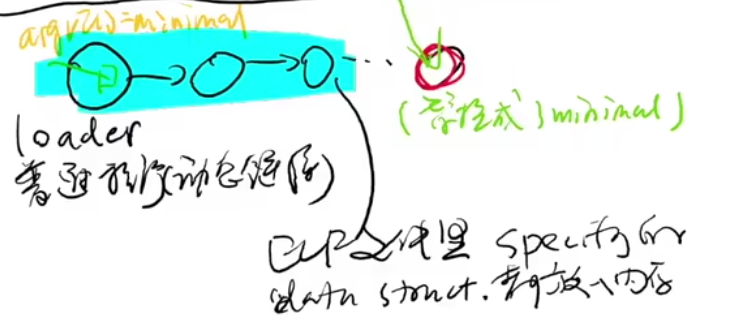 argv[1]=minimal
(替换成了minimal)
loader
普通程序(动态链接)
ELF文件里 specify 的
data struct. 都放入内存